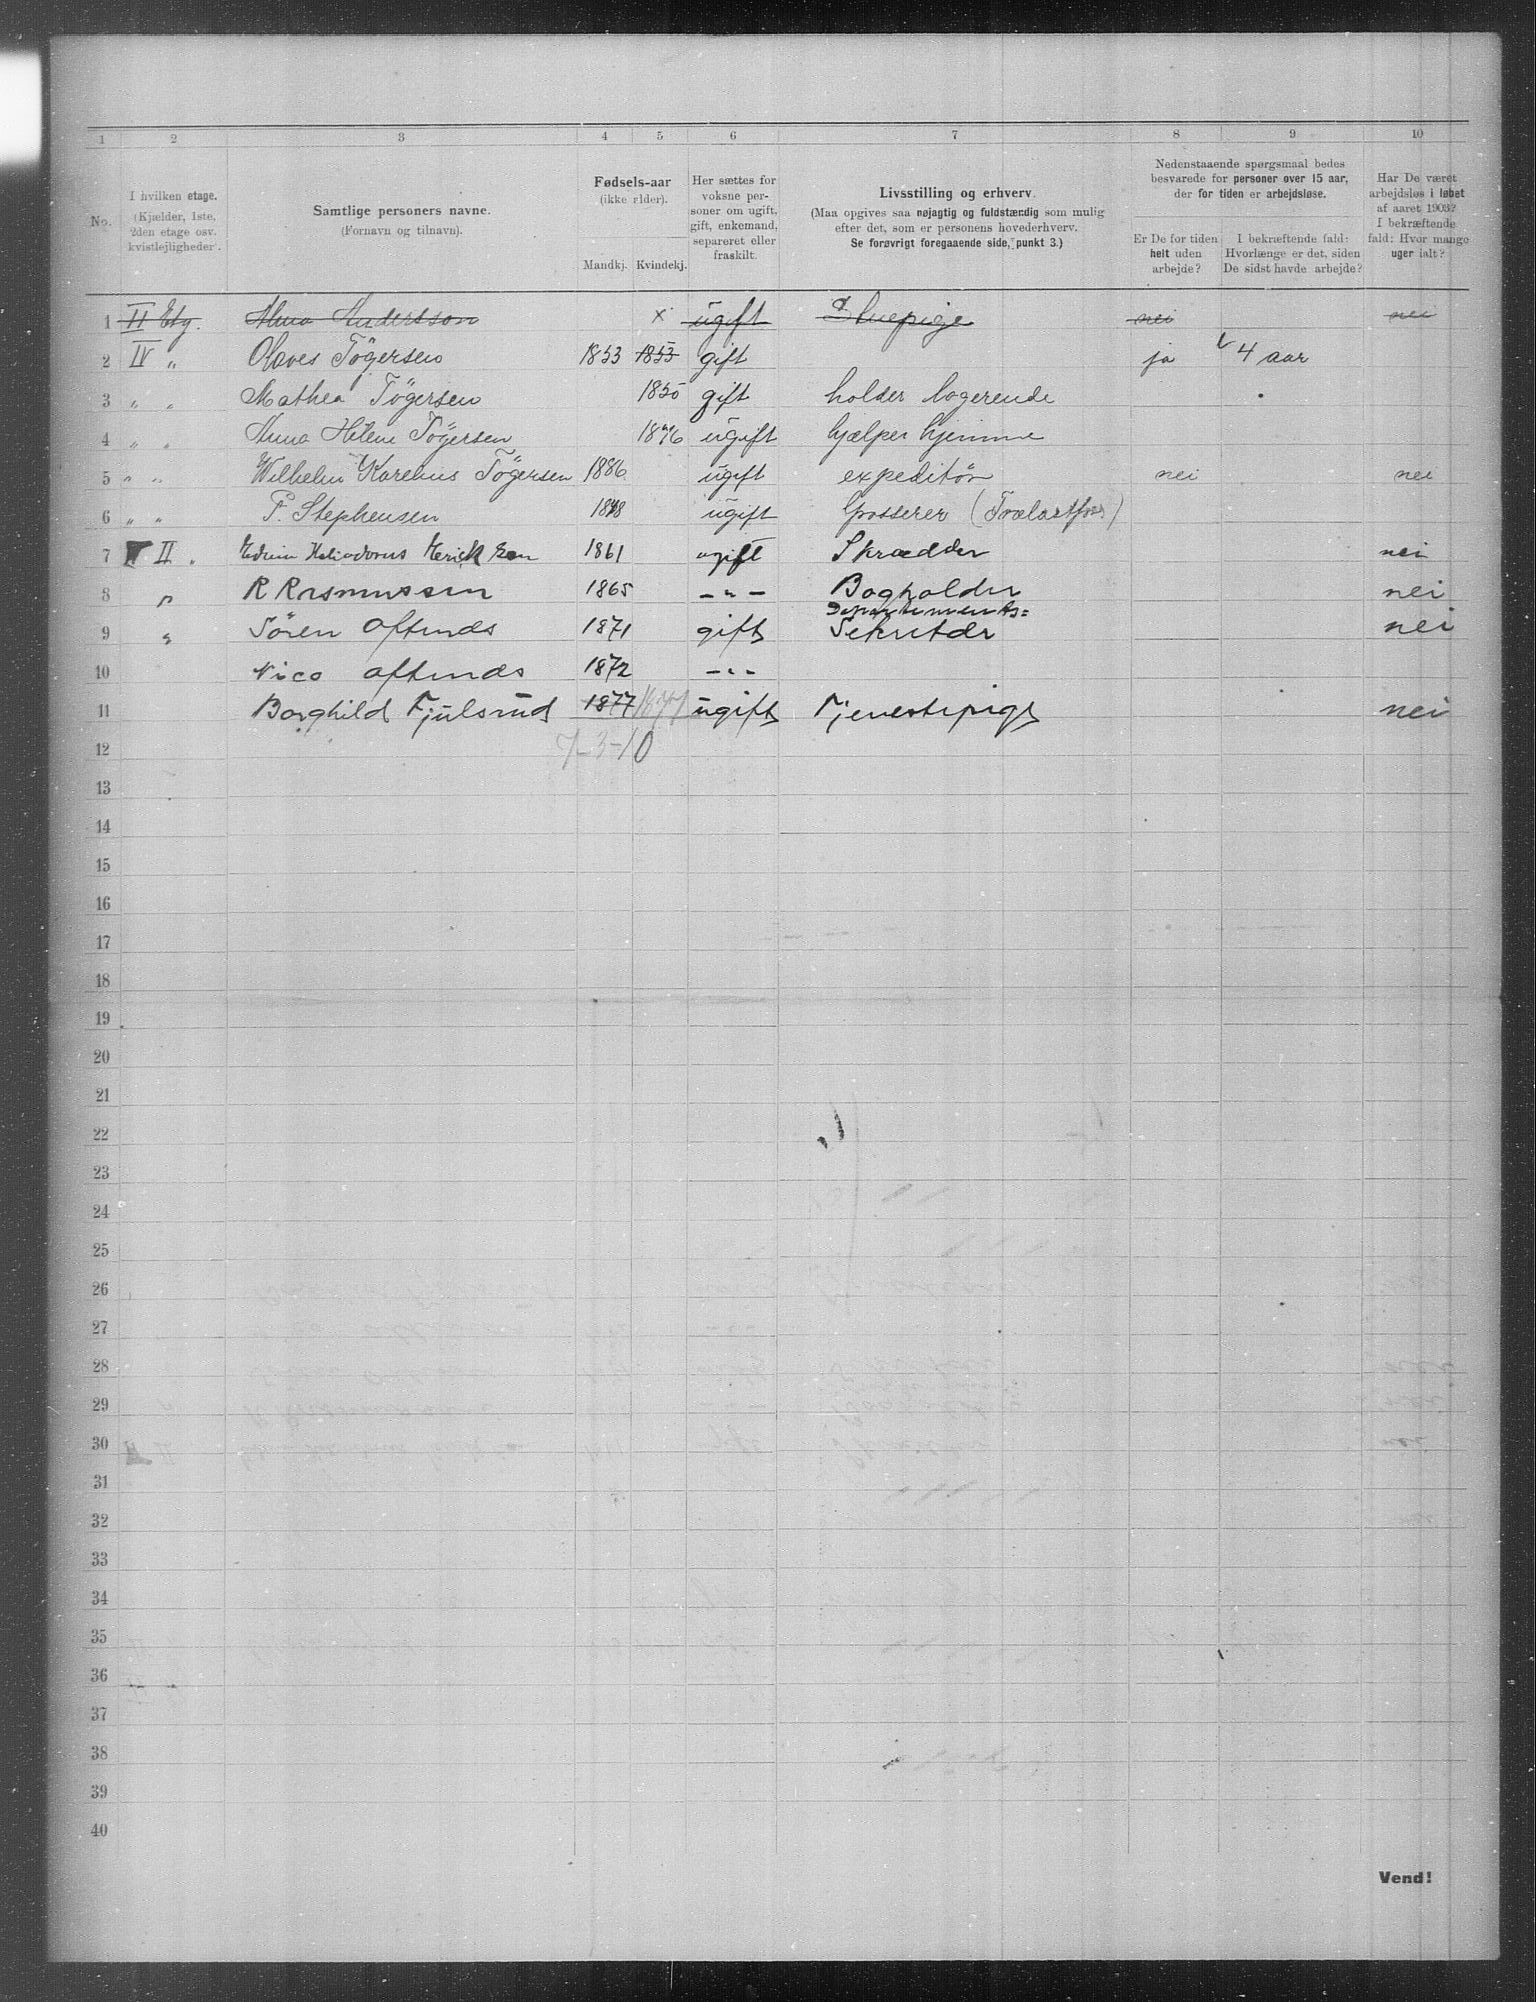 1 2 3 4 5 6 7 8 9 10
No.
I hvilken etage.
(Kjælder, 1ste,
2den etage osv.
kvistlejligheder.
Samtlige personers navne.
(Fornavn og tilnavn).
Fødsels-aar
(ikke alder).
Mandkj. Kvindekj.
Her sættes for
voksne per-
soner om ugift,
gift, enkemand,
separeret eller
fraskilt.
Livsstilling og erhverv.
(Maa opgives saa nøjagtig og fuldstændig som mulig
efter det, som er personens hovederhverv.
Se forøvrigt foregaaende side, punkt 3.)
Nedenstaaende spørgsmaal bedes
besvarede for personer over 15 aar,
der for tiden er arbejdsløse.
Er De for tiden
helt uden
arbejde?
I bekræftende fald:
Hvorlænge er det, siden
De sidst havde arbejde?
Har De været
arbejdsløs i løbet
af aaret 1903?
I bekræftende
fald: Hvor mange
uger ialt?
1 II Etg. Alma Andersson x ugift Stuepige nei nei
2 IV " Olaves Tögersen 1853 1853 gift ja 4 aar
3 " " Mathea Tögersen 1850 gift holder logerende
4 " " Anna Helene Tögersen 1876 ugift hjælper hjemme
5 " " Wilhelm Karelius Tögersen 1886 ugift expeditør nei nei
6 " " P. Stephensen 1878 ugift Grosserer (Trælastforr.)
7 II " Edwin Heliodorus Erickson 1861 ugift Skrædder nei
8 " R Rasmussen 1865 - " - Bogholder nei
Departements=
9 " Sören Aftends 1871 gift Sekretær nei
10 Nico Aftends 1872 - " -
11 Borghild Fjulsrud 1877 1877 ugift Tjenestepige nei
7-3-10
12
13
14
15
16
17
18
19
20
21
22
23
24
25
26
27
28
29
30
31
32
33
34
35
36
37
38
39
40
Vend!